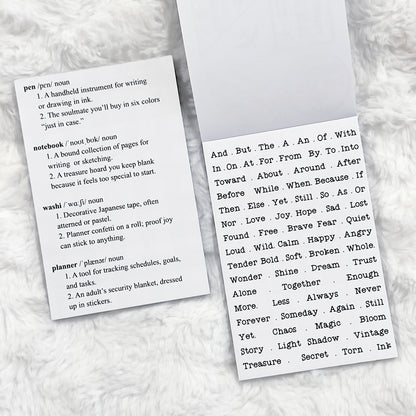 pen /pɛn/ noun
1. A handheld instrument for writing
or drawing in ink.
2. The soulmate you'll buy in six colors
"just in case."
notebook /ˈnoʊtˌbʊk/ noun
1. A bound collection of pages for
writing or sketching.
2. A treasure hoard you keep blank
because it feels too special to start.
washi /ˈwɑːʃi/ noun
1. Decorative Japanese tape, often
patterned or pastel.
2. Planner confetti on a roll; proof joy
can stick to anything.
planner /ˈplænər/ noun
1. A tool for tracking schedules, goals,
and tasks.
2. An adult's security blanket, dressed
up in stickers.
And . But . The . A . An . Of . With
In . On . At . For . From . By . To . Into
Toward . About . Around . After
Before . While . When . Because . If
Then . Else . Yet . Still . So . As . Or
Nor . Love . Joy. Hope . Sad . Lost
Found . Free . Brave . Fear . Quiet
Loud . Wild . Calm . Happy . Angry
Tender . Bold . Soft . Broken . Whole.
Wonder . Shine . Dream . Trust
Alone . Together . Enough
More. Less . Always . Never
Forever . Someday . Again . Still
Yet. Chaos . Magic . Bloom
Story . Light . Shadow . Vintage
Treasure . Secret . Torn . Ink